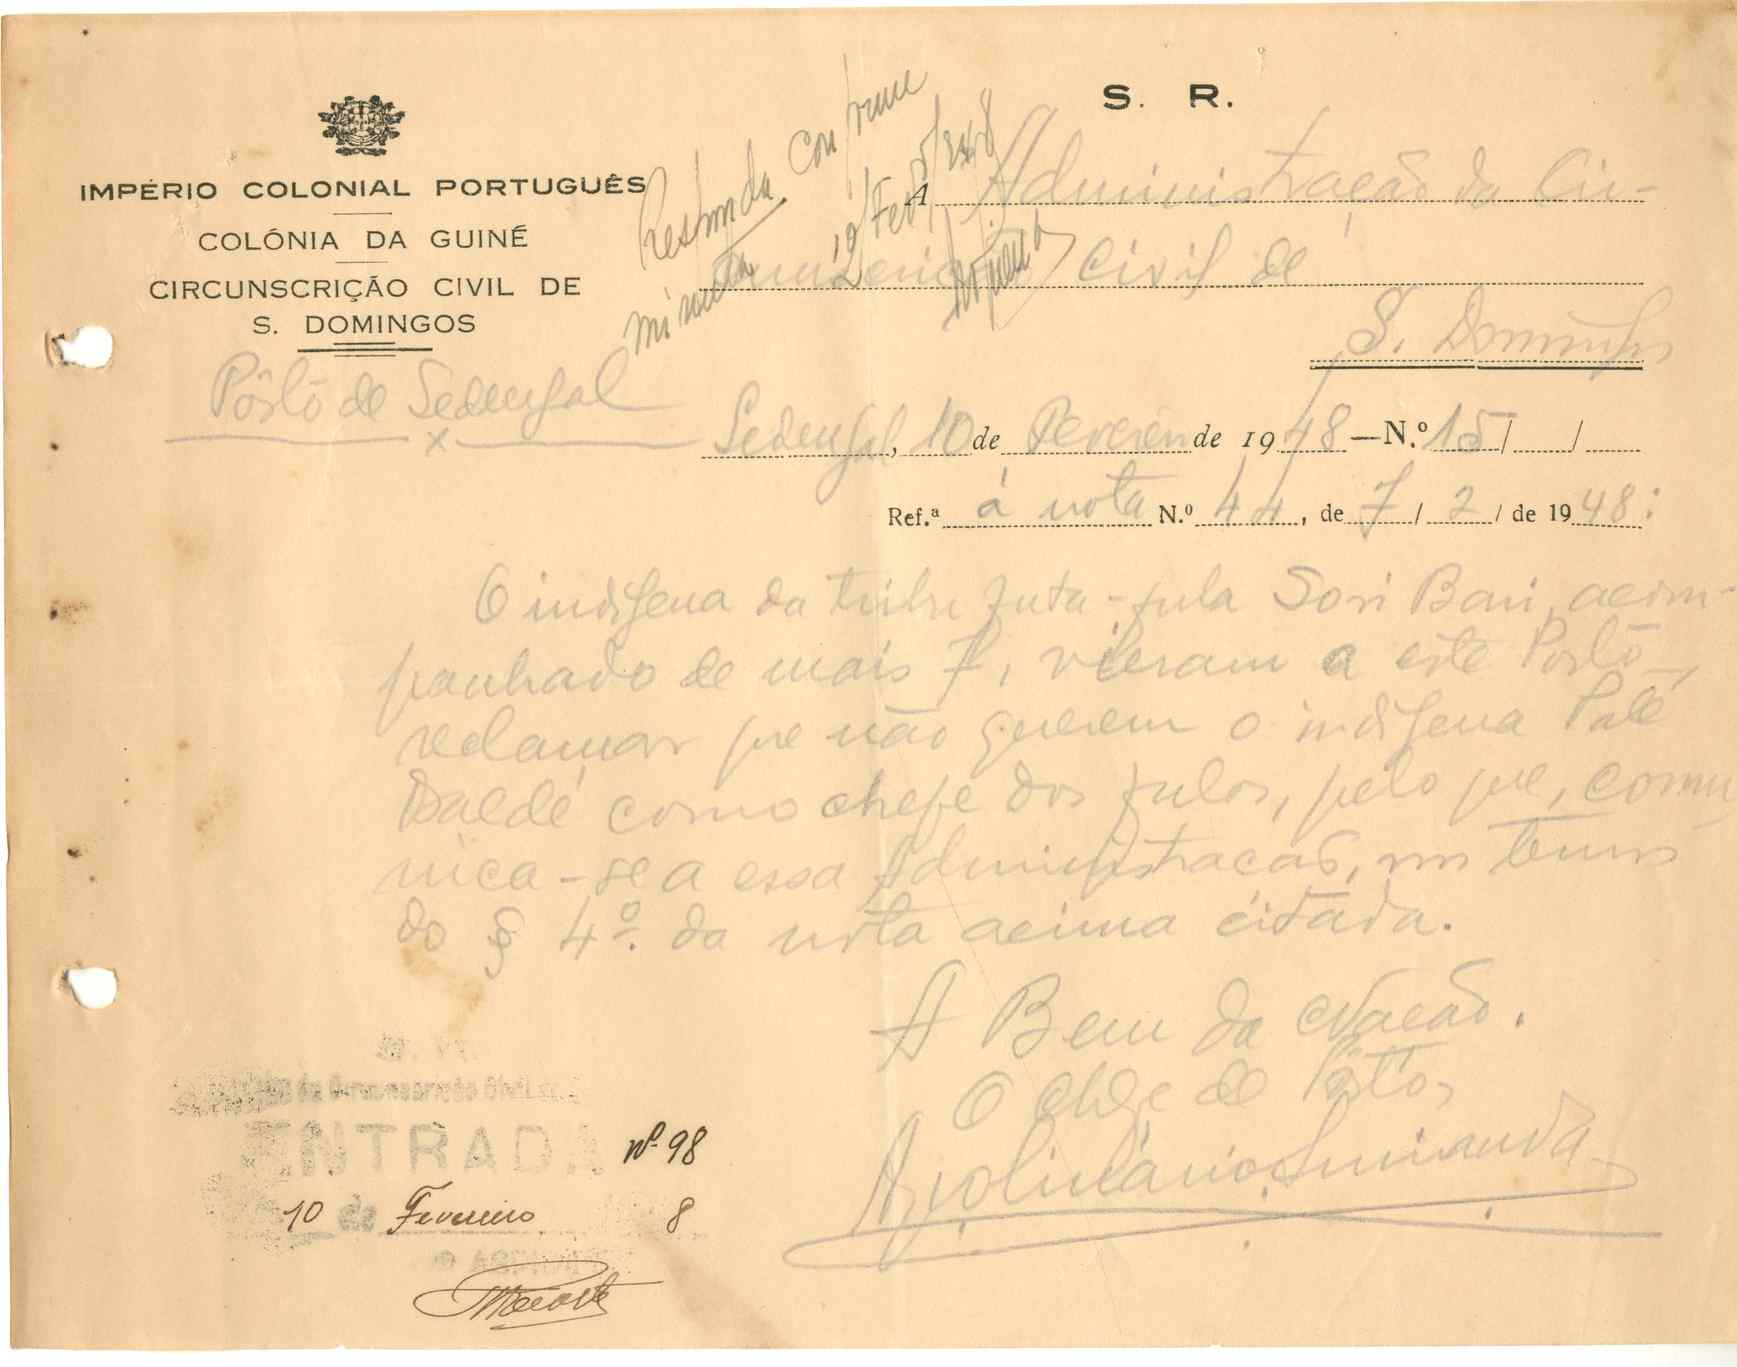 S. R.
IMPÉRIO COLONIAL PORTUGUÊS
COLÓNIA DA GUINÉ
CIRCUNSCRIÇÃO CIVIL DE
S. DOMINGOS
Pôsto de Sedengal
x
Responda conforme
minuta
12/Fevº/948
A Administração da Cir-
cunscrição Civil de
S. Domingos
Sedengal, 10 de Fevereiro de 1948 — N.º 15/ /
Ref.ª á nota N.º 44, de 7 / 2 / de 1948:
O indígena da tribu futa-fula Sori Bari, acom-
panhado de mais 7, vieram a este Posto,
reclamar que não querem o indígena Paté
Baldé como chefe dos fulos, pelo que, comu-
nica-se a essa Administracão, nos termos
do § 4º. da nota acima citada.
A Bem da Nação.
O chefe de Pôsto,
da Circunscrição Civil
ENTRADA nº 98
10 de Fevereiro 8